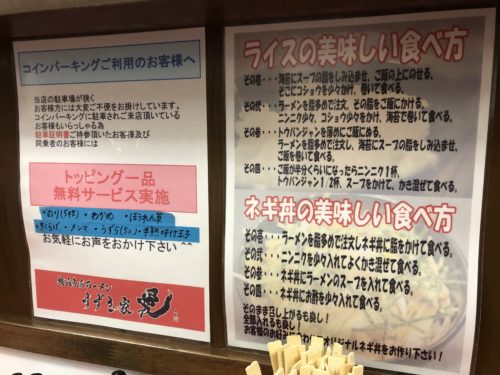 コインパーキングご利用のお客様へ
当店の駐車場が狭く
お客様方には大変ご不便をお掛けしています。
コインパーキングに駐車されご来店頂いている
お客様もいらっしゃる為
駐車証明書ご持参頂いたお客様及び
同乗者のお客様には
トッピング一品
無料サービス実施
・のり(5枚)・わかめ・ほうれん草
・きくらげ・メンマ・うずら(5コ)・半熟味付玉子
お気軽にお声をおかけ下さい ^^
横浜家系ラーメン
すずき家
ライスの美味しい食べ方
その壱・・・海苔にスープの脂をしみ込ませ、ご飯の上にのせる。
そこにコショウを少々かけ、巻いて食べる。
その弐・・・ラーメンを脂多めで注文し、その脂をご飯にかける。
ニンニク少々、コショウをかけ、海苔で巻いて食べる。
その参・・・トウバンジャンを薄めにご飯にぬる。
ラーメンを脂多めで注文し、ご飯にかけ海苔で巻いて食べる。
その四・・・ご飯が半分くらいになったらニンニク1杯、
トウバンジャン1/2杯、スープをかけて、かき混ぜて食べる。
ネギ丼の美味しい食べ方
その壱・・・・ラーメンを脂多めで注文しネギ丼に脂をかけて食べる。
その弐・・・・ネギ丼にニンニクを少々入れてよくかき混ぜて食べる。
その参・・・・ネギ丼にラーメンのスープを入れて食べる。
その四・・・・ネギ丼にお酢を少々入れて食べる。
そのまま召し上がるも良し!
全部入れるも良し!
お客様のお好みに合わせオリジナルネギ丼をお作り下さい!